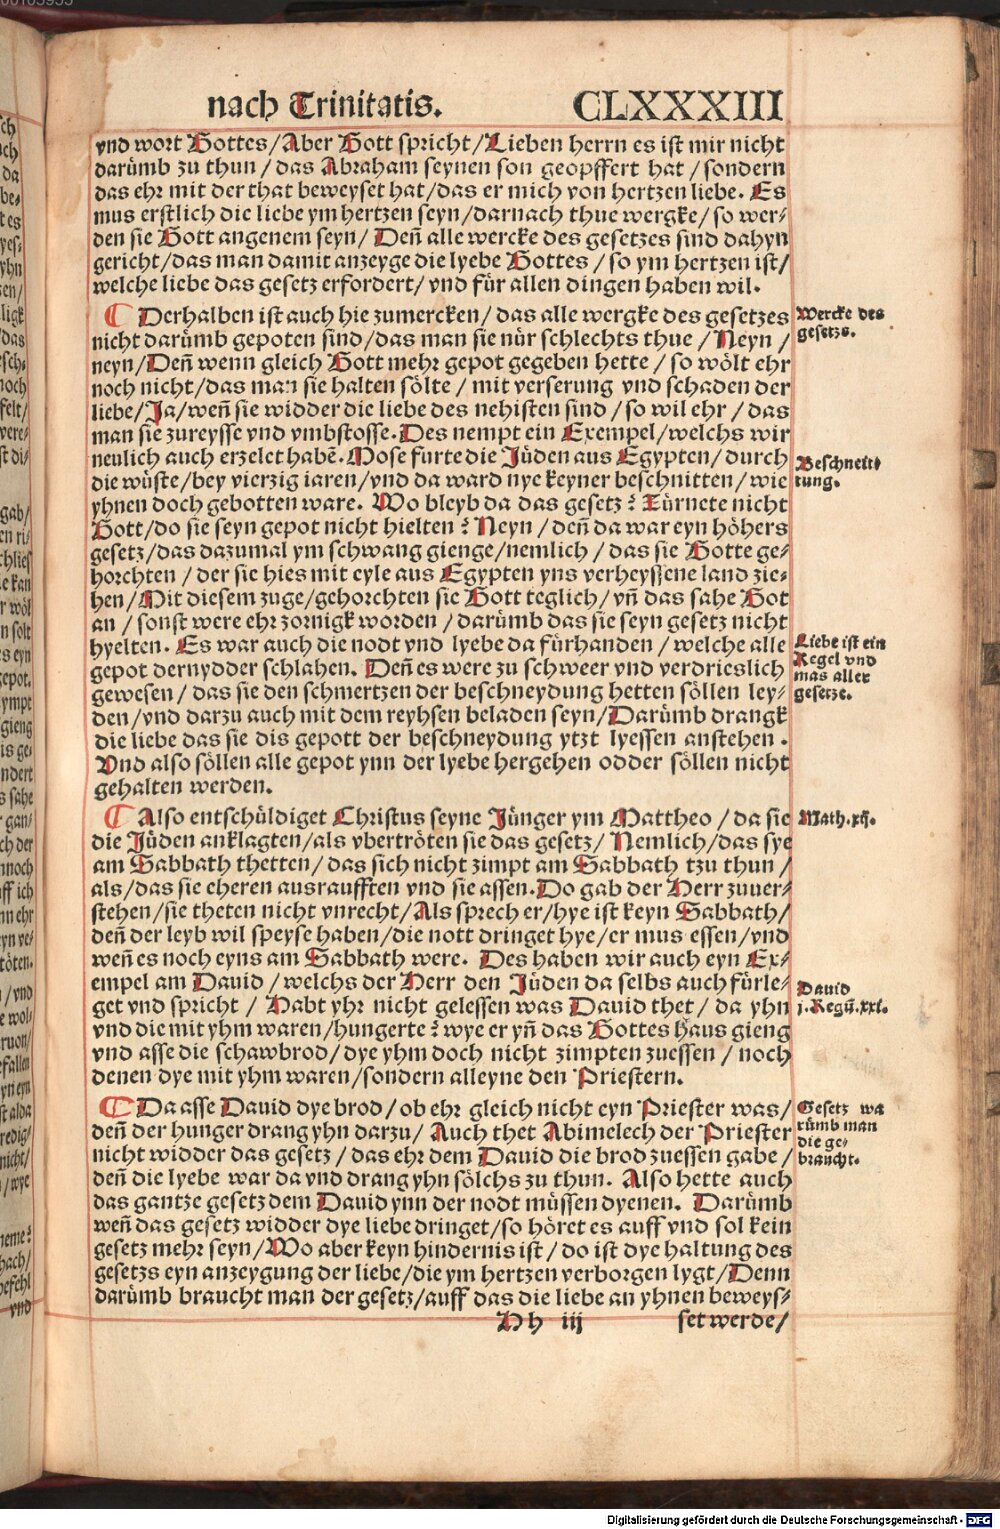 nach Trinitatis. CLXXXIII
vnd wort Gottes/Aber Gott spricht/Lieben herrn es ist mir nicht
darümb zu thun/das Abraham seynen son geopffert hat/sondern
das ehr mit der that beweyset hat/das er mich von hertzen liebe. Es
mus erstlich die liebe ym hertzen seyn/darnach thue wergke/so wer-
den sie Gott angenem seyn/Deñ alle wercke des gesetzes sind dahyn
gericht/das man damit anzeyge die lyebe Gottes/so ym hertzen ist/
welche liebe das gesetz erfordert/vnd für allen dingen haben wil.
¶ Derhalben ist auch hie zumercken/das alle wergke des gesetzes
nicht darümb gepoten sind/das man sie nür schlechts thue/Neyn/
neyn/Deñ wenn gleich Gott mehr gepot gegeben hette/so wölt ehr
noch nicht/das man sie halten sölte/mit verserung vnd schaden der
liebe/Ja/weñ sie widder die liebe des nehisten sind/so wil ehr/das
man sie zureysse vnd vmbstosse. Des nempt ein Exempel/welchs wir
neulich auch erzelet habẽ. Mose furte die Jüden aus Egypten/durch
die wüste/bey vierzig iaren/vnd da ward nye keyner beschnitten/wie
yhnen doch gebotten ware. Wo bleyb da das gesetz? Zürnete nicht
Gott/do sie seyn gepot nicht hielten? Neyn/deñ da war eyn höhers
gesetz/das dazumal ym schwang gienge/nemlich/das sie Gotte ge-
horchten/der sie hies mit eyle aus Egypten yns verheyssene land zie-
hen/Mit diesem zuge/gehorchten sie Gott teglich/vñ das sahe Got
an/sonst were ehr zornigk worden/darümb das sie seyn gesetz nicht
hyelten. Es war auch die nodt vnd lyebe da fürhanden/welche alle
gepot dernydder schlahen. Deñ es were zu schweer vnd verdrieslich
gewesen/das sie den schmertzen der beschneydung hetten söllen ley-
den/vnd darzu auch mit dem reyhsen beladen seyn/Darümb drangk
die liebe das sie dis gepott der beschneydung ytzt lyessen anstehen.
Vnd also söllen alle gepot ynn der lyebe hergehen odder söllen nicht
gehalten werden.
¶ Also entschüldiget Christus seyne Jünger ym Mattheo/da sie
die Jüden anklagten/als vbertröten sie das gesetz/Nemlich/das sye
am Sabbath thetten/das sich nicht zimpt am Sabbath tzu thun/
als/das sie eheren ausraufften vnd sie assen. Do gab der Herr zuuer-
stehen/sie theten nicht vnrecht/Als sprech er/hye ist keyn Sabbath/
deñ der leyb wil speyse haben/die nott dringet hye/er mus essen/vnd
weñ es noch eyns am Sabbath were. Des haben wir auch eyn Ex-
empel am Dauid/welchs der Herr den Jüden da selbs auch fürle-
get vnd spricht/Habt yhr nicht gelessen was Dauid thet/da yhn
vnd die mit yhm waren/hungerte? wye er yñ das Gottes haus gieng
vnd asse die schawbrod/dye yhm doch nicht zimpten zuessen/noch
denen dye mit yhm waren/sondern alleyne den Priestern.
¶ Da asse Dauid dye brod/ob ehr gleich nicht eyn Priester was/
deñ der hunger drang yhn darzu/Auch thet Abimelech der Priester
nicht widder das gesetz/das ehr dem Dauid die brod zuessen gabe/
deñ die lyebe war da vnd drang yhn sölchs zu thun. Also hette auch
das gantze gesetz dem Dauid ynn der nodt müssen dyenen. Darümb
weñ das gesetz widder dye liebe dringet/so höret es auff vnd sol kein
gesetz mehr seyn/Wo aber keyn hindernis ist/do ist dye haltung des
gesetzs eyn anzeygung der liebe/die ym hertzen verborgen lygt/Denn
darümb braucht man der gesetz/auff das die liebe an yhnen beweys-
Hh iij set werde/
Wercke des
gesetzs.
Beschneit-
tung.
Liebe ist ein
Regel vnd
mas aller
gesetze.
Math.xij.
Dauid
j.Regũ.xxi.
Gesetz wa
rümb man
die ge-
braucht.
Digitalisierung gefördert durch die Deutsche Forschungsgemeinschaft - DFG